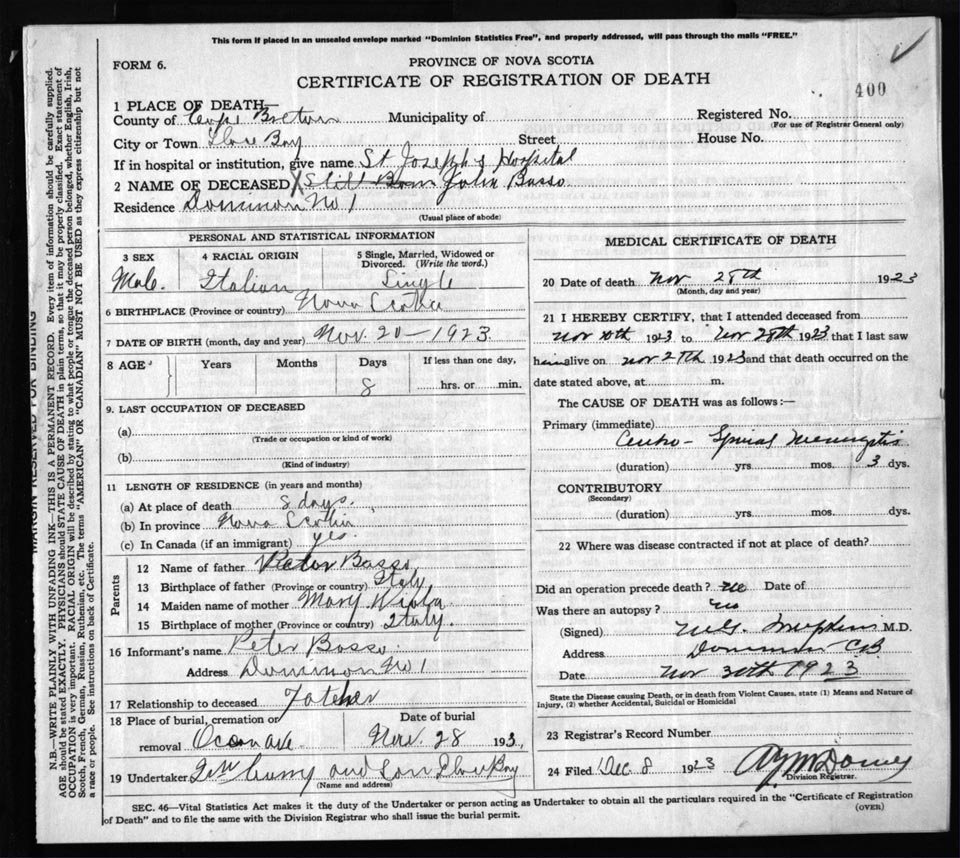 This form if placed in an unsealed envelope marked "Dominion Statistics Free", and properly addressed, will pass through the mails "FREE."
FORM 6.
PROVINCE OF NOVA SCOTIA
CERTIFICATE OF REGISTRATION OF DEATH
400
1 PLACE OF DEATH—
County of Cape Breton Municipality of Registered No.
(For use of Registrar General only)
City or Town Glace Bay Street House No.
If in hospital or institution, give name St Joseph's Hospital
2 NAME OF DECEASED Still Born John Basso
Residence Dominion No 1
(Usual place of abode)
PERSONAL AND STATISTICAL INFORMATION
3 SEX 4 RACIAL ORIGIN 5 Single, Married, Widowed or Divorced. (Write the word.)
Male. Italian Single
6 BIRTHPLACE (Province or country) Nova Scotia
7 DATE OF BIRTH (month, day and year) Nov. 20 - 1923.
8 AGE Years Months Days If less than one day,
8 hrs. or min.
9. LAST OCCUPATION OF DECEASED
(a)
(Trade or occupation or kind of work)
(b)
(Kind of industry)
11 LENGTH OF RESIDENCE (in years and months)
(a) At place of death 8 days.
(b) In province Nova Scotia
(c) In Canada (if an immigrant) yes.
Parents
12 Name of father Peter Basso
13 Birthplace of father (Province or country) Italy
14 Maiden name of mother Mary Viola
15 Birthplace of mother (Province or country) Italy.
16 Informant's name Peter Basso.
Address Dominion No 1
17 Relationship to deceased Father
18 Place of burial, cremation or removal Ocean Ave Date of burial Nov. 28 193
19 Undertaker and Son Glace Bay
(Name and address)
MEDICAL CERTIFICATE OF DEATH
20 Date of death Nov 28th 1923
(Month, day and year)
21 I HEREBY CERTIFY, that I attended deceased from
Nov 1923 to Nov 28th 1923 that I last saw
him alive on Nov 27th 1923 and that death occurred on the
date stated above, at m.
The CAUSE OF DEATH was as follows:—
Primary (immediate)
Cerebro - Spinal Meningitis
(duration) yrs. mos. 3 dys.
CONTRIBUTORY
(Secondary)
(duration) yrs. mos. dys.
22 Where was disease contracted if not at place of death?
Did an operation precede death? no Date of
Was there an autopsy? no
(Signed) M.D.
Address Dominion C.B.
Date Nov 30th 1923
State the Disease causing Death, or in death from Violent Causes, state (1) Means and Nature of Injury, (2) whether Accidental, Suicidal or Homicidal
23 Registrar's Record Number
24 Filed Dec 8 1923
Division Registrar.
SEC. 46—Vital Statistics Act makes it the duty of the Undertaker or person acting as Undertaker to obtain all the particulars required in the "Certificate of Registration
of Death" and to file the same with the Division Registrar who shall issue the burial permit.
(OVER)
MARGIN RESERVED FOR BINDING
N.B.—WRITE PLAINLY WITH UNFADING INK—THIS IS A PERMANENT RECORD. Every item of information should be carefully supplied.
AGE should be stated EXACTLY. PHYSICIANS should STATE CAUSE OF DEATH in plain terms, so that it may be properly classified. Exact statement of
OCCUPATION is very important. RACIAL ORIGIN will be described by stating to what people or tongue the deceased person belonged, whether English, Irish,
Scotch, French, German, Russian, Ruthenian, etc. The terms "AMERICAN" OR "CANADIAN" MUST NOT BE USED as they express citizenship but not
a race or people. See instructions on back of Certificate.